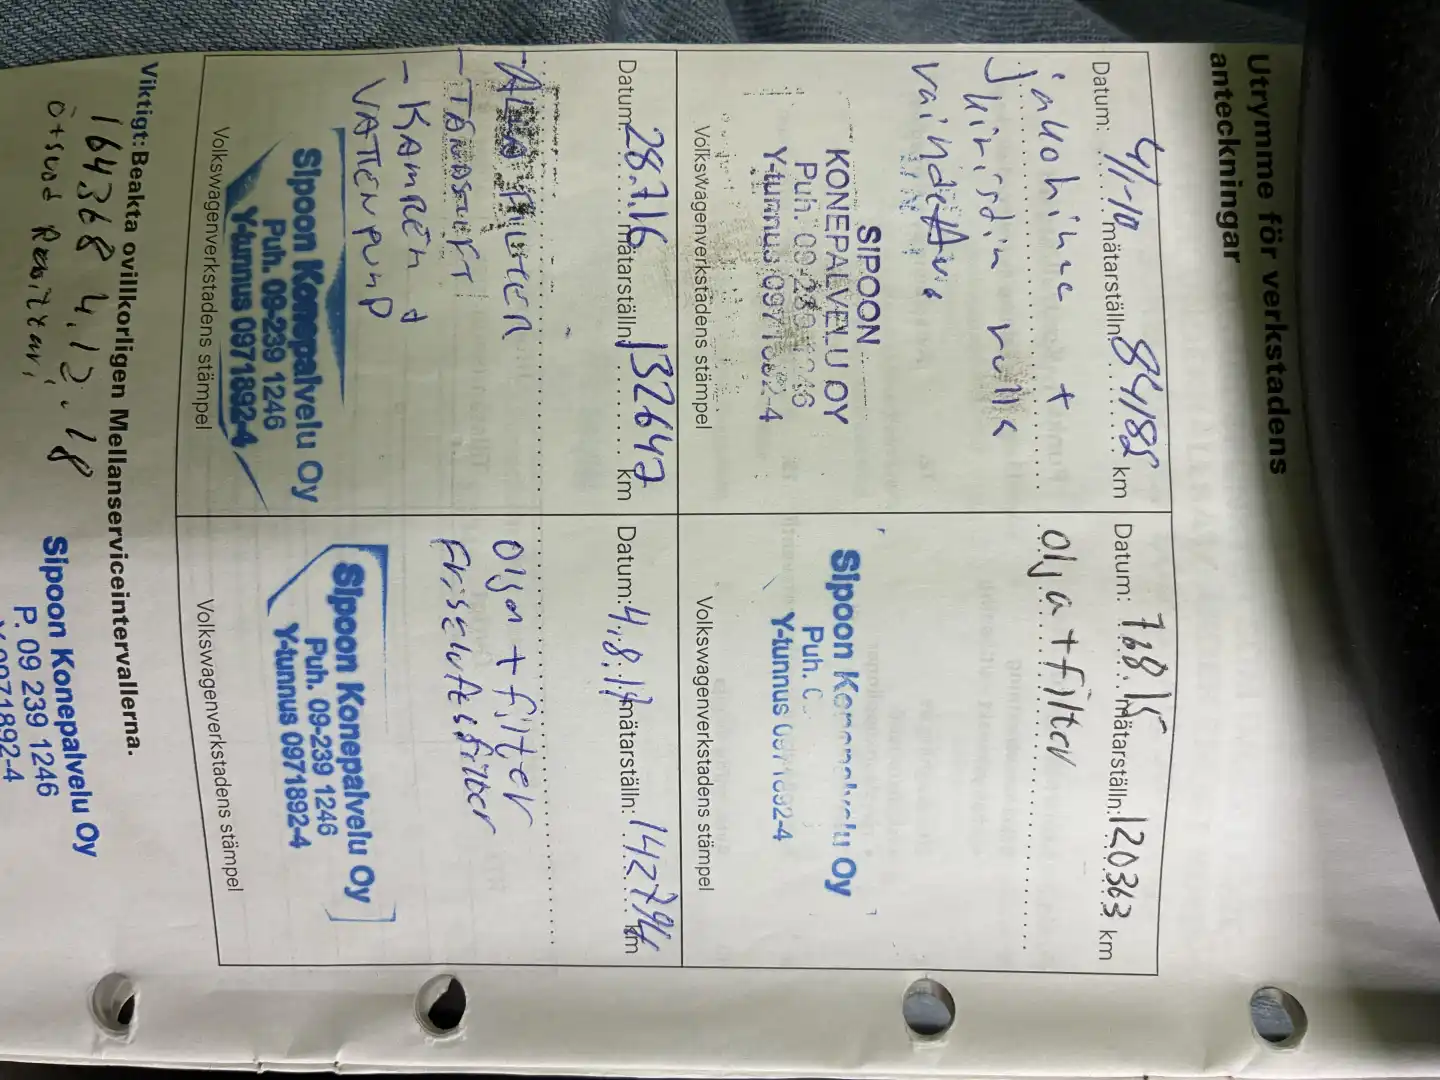 Utrymme för verkstadens
anteckningar
Datum: 4/-10 mätarställn 84182 km
jakohinac +
kiristin rulla
vaihdettu
SIPOON
KONEPALVELU OY
Puh. 09-239 1246
Y-tunnus 0971892-4
Volkswagenverkstadens stämpel
Datum: 768.15 mätarställn: 120363 km
olja + filter
Sipoon Konepalvelu Oy
Puh.
Y-tunnus 0971892-4
Volkswagenverkstadens stämpel
Datum: 28.7.16 mätarställn 132647 km
- ALLA FILTTER
- TÄNDSTIFT
- KAMREM +
VATTENPUMP
Sipoon Konepalvelu Oy
Puh. 09-239 1246
Y-tunnus 0971892-4
Volkswagenverkstadens stämpel
Datum: 4.8.17 mätarställn: 142794 km
Olja + filter
Friskluftsfilter
Sipoon Konepalvelu Oy
Puh. 09-239 1246
Y-tunnus 0971892-4
Volkswagenverkstadens stämpel
Viktigt: Beakta ovillkorligen Mellanserviceintervallerna.
164368 4.12.18
Sipoon Konepalvelu Oy
P. 09 239 1246
Y-0971892-4